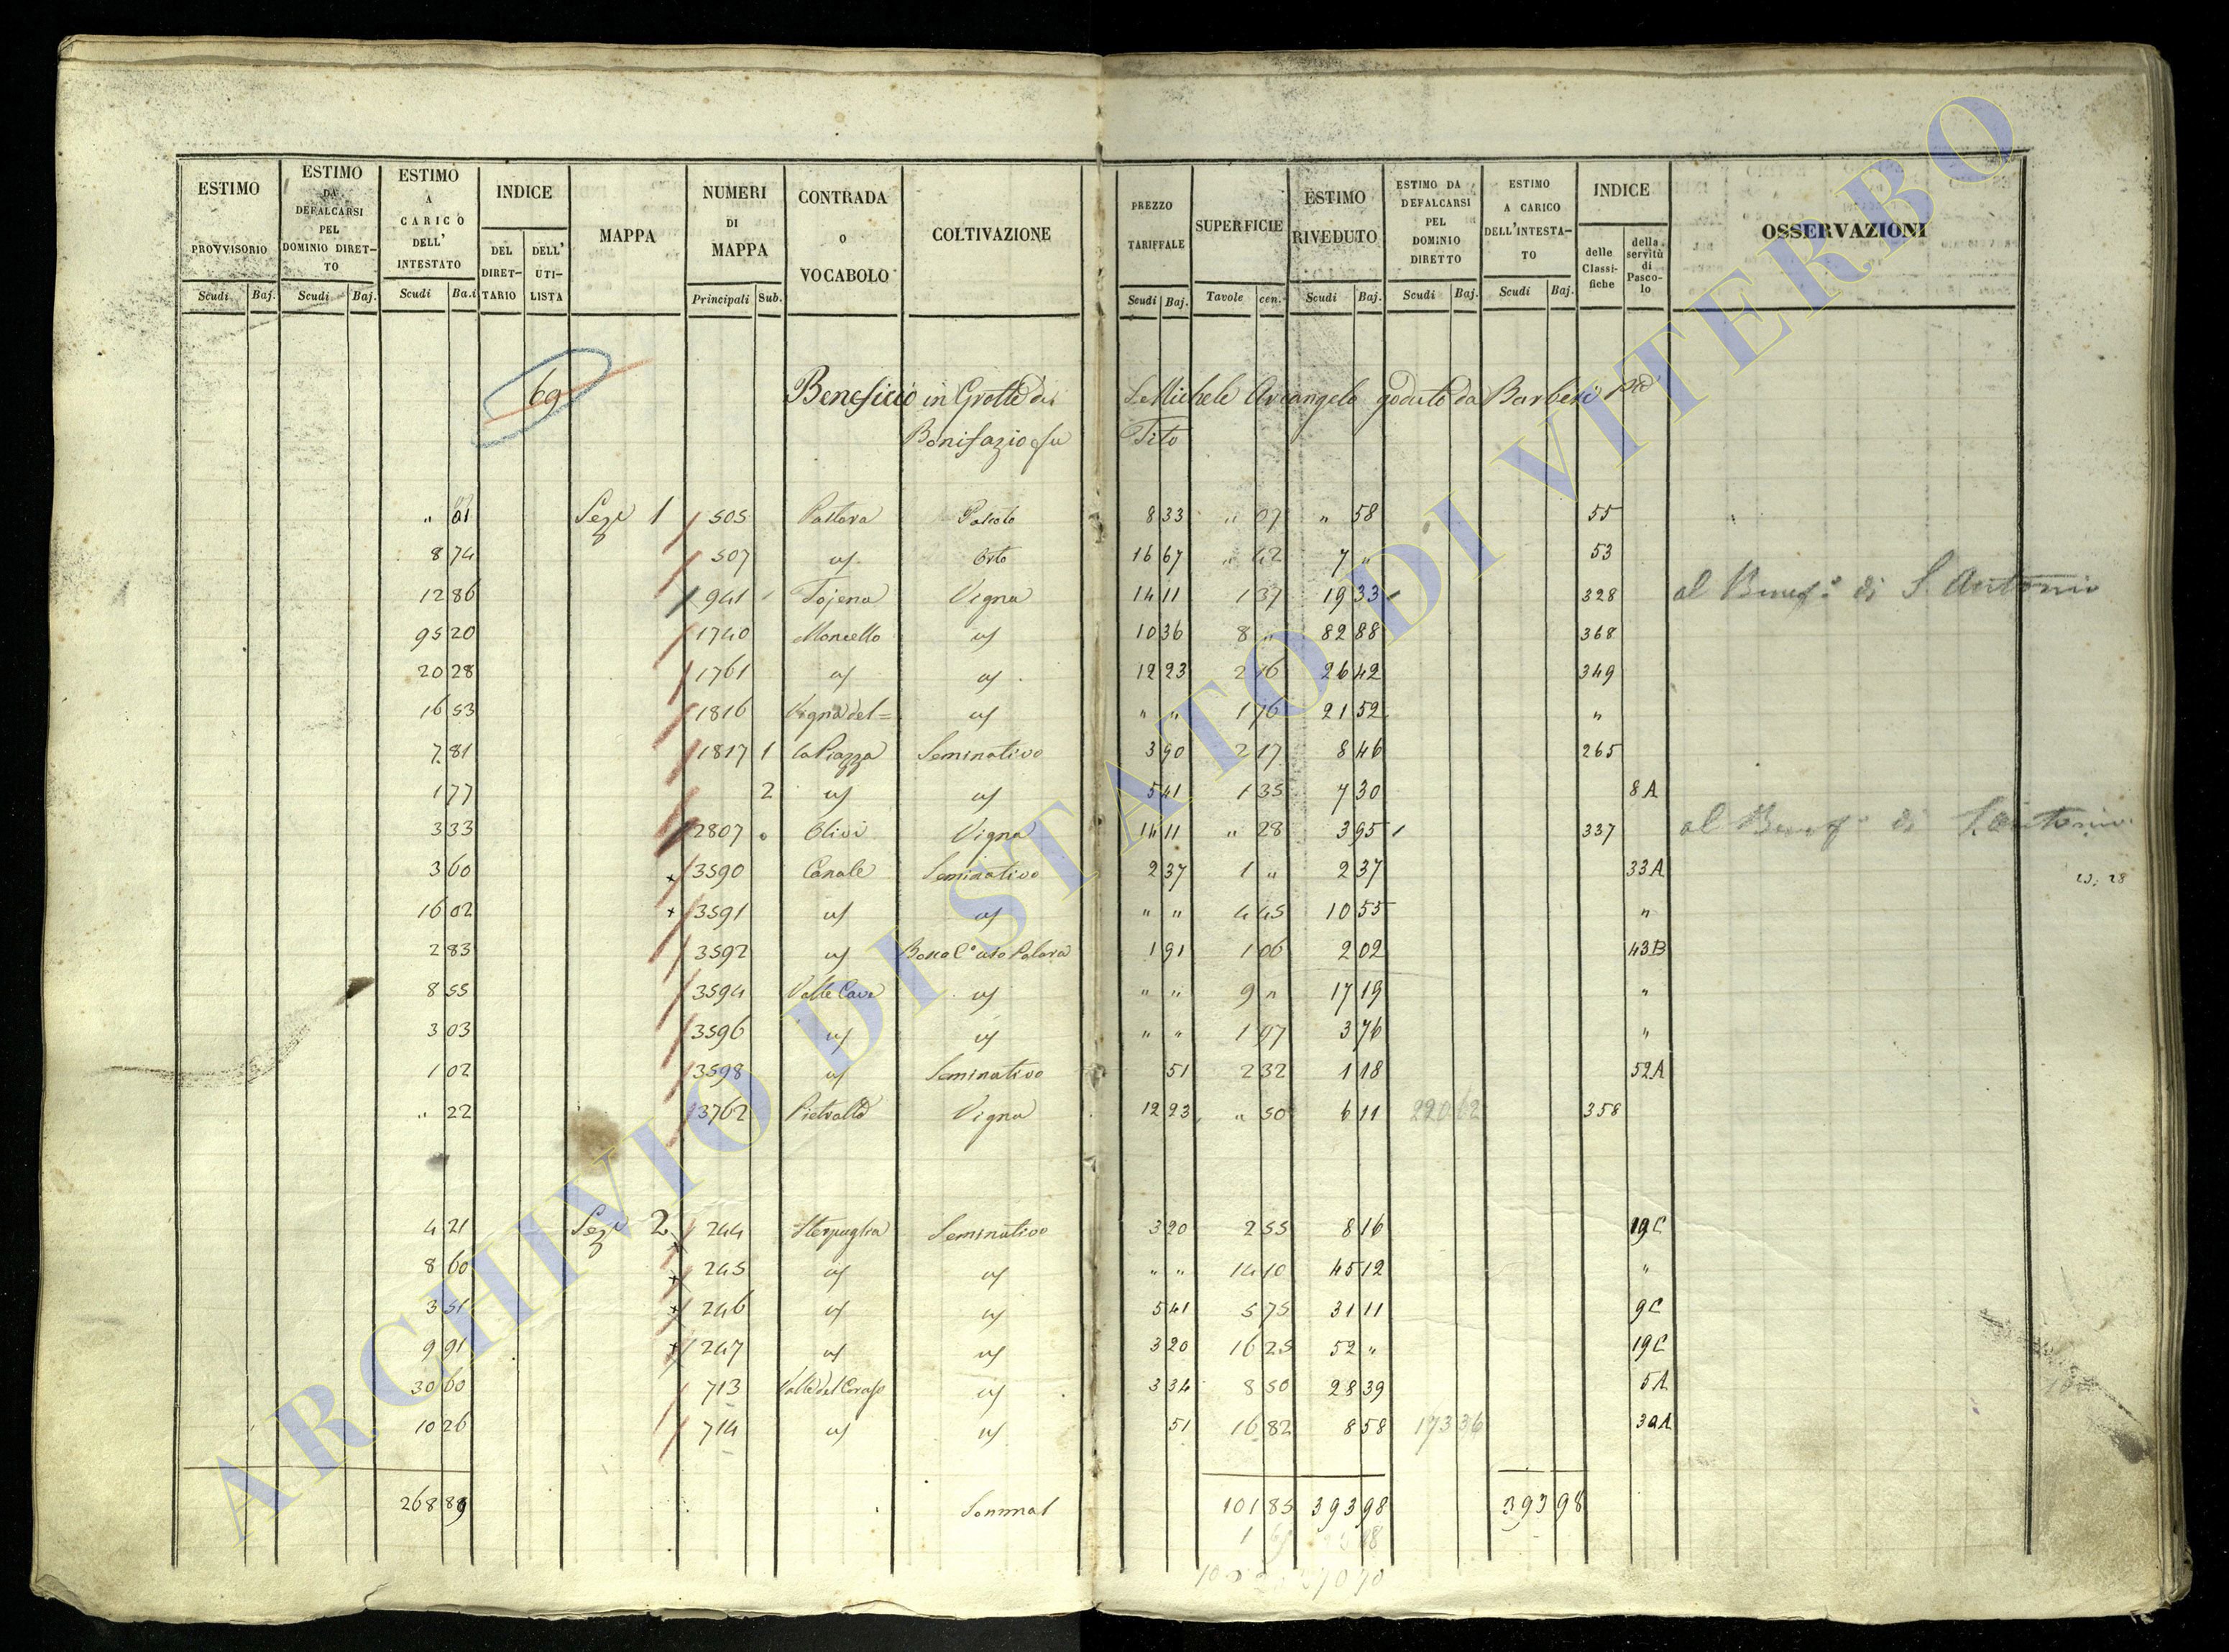 ESTIMO PROVVISORIO Scudi Baj.
ESTIMO DA DEFALCARSI PEL DOMINIO DIRET-TO Scudi Baj.
ESTIMO A CARICO DELL' INTESTATO Scudi Ba.i
INDICE DEL DIRET-TARIO DELL' UTI-LISTA
MAPPA
NUMERI DI MAPPA Principali Sub.
CONTRADA O VOCABOLO
COLTIVAZIONE
PREZZO TARIFFALE Scudi Baj.
SUPERFICIE Tavole cen.
ESTIMO RIVEDUTO Scudi Baj.
ESTIMO DA DEFALCARSI PEL DOMINIO DIRETTO Scudi Baj.
ESTIMO A CARICO DELL'INTESTA-TO Scudi Baj.
INDICE delle Classi-fiche della servitù di Pasco-lo
OSSERVAZIONI
69 Beneficio in Grotte di S. Michele Arcangelo goduto da Barberi
Bonifazio fu Tito
" 01 Sez.e 1 505 Pastora Pascolo 8 33 " 07 " 58 55
8 74 507 Orto 16 67 " 42 7 " 53
12 86 941 Tojena Vigna 14 11 1 37 19 33 328 al Benef.o di S. Antonio
95 20 1740 Moncello 10 36 8 " 82 88 368
20 28 1761 12 23 2 16 26 42 349
16 53 1816 Vigna del= " " 1 76 21 52 "
7 81 1817 1 la Piazza Seminativo 3 90 2 17 8 46 265
1 77 2 5 41 1 35 7 30 8 A
3 33 2807 Olivi Vigna 14 11 " 28 3 95 337 al Benef.o di S. Antonio
3 60 + 3590 Canale Seminativo 2 37 1 " 2 37 33 A
16 02 + 3591 " " 4 45 10 55 "
2 83 3592 1 91 1 06 2 02 43 B
8 55 3594 Valle Cave " " 9 " 17 19 "
3 03 3596 " " 1 97 3 76 "
1 02 3598 Seminativo 51 2 32 1 18 52 A
" 22 3762 Vigna 12 23 " 50 6 11 220 62 358
4 21 Sez.e 2 244 Sterpaglia Seminativo 3 20 2 55 8 16 19 C
8 60 + 245 " " 14 10 45 12 "
3 51 + 246 5 41 5 75 31 11 9 C
9 91 + 247 3 20 16 25 52 " 19 C
30 60 713 3 34 8 50 28 39 5 A
10 26 714 51 16 82 8 58 173 36 30 A
268 89 101 85 393 98 393 98
ARCHIVIO DI STATO DI VITERBO